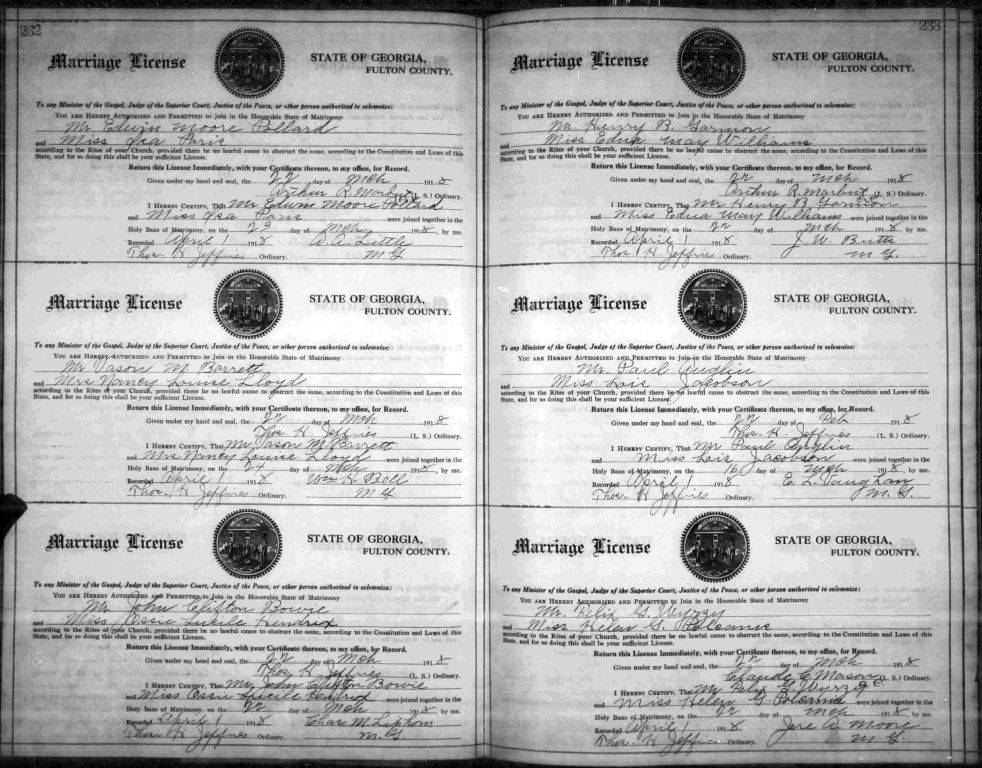 232
Marriage License
STATE OF GEORGIA,
FULTON COUNTY.
To any Minister of the Gospel, Judge of the Superior Court, Justice of the Peace, or other person authorized to solemnize:
YOU ARE HEREBY AUTHORIZED AND PERMITTED to Join in the Honorable State of Matrimony
Mr Edwin Moore Pollard
and Miss Isa Paris
according to the Rites of your Church, provided there be no lawful cause to obstruct the same, according to the Constitution and Laws of this
State, and for so doing this shall be your sufficient License.
Return this License Immediately, with your Certificate thereon, to my office, for Record.
Given under my hand and seal, the 22 day of Mch 1918
Arthur R. Marbut (L. S.) Ordinary.
I HEREBY CERTIFY, That Mr Edwin Moore Pollard
and Miss Isa Paris were joined together in the
Holy Bans of Matrimony, on the 23 day of Mch 1918, by me.
Recorded April 1 1918 Little
Thos H Jeffries Ordinary. M G
Marriage License
STATE OF GEORGIA,
FULTON COUNTY.
To any Minister of the Gospel, Judge of the Superior Court, Justice of the Peace, or other person authorized to solemnize:
YOU ARE HEREBY AUTHORIZED AND PERMITTED to Join in the Honorable State of Matrimony
Mr Vason M Barrett
and Mrs Nancy Louise Lloyd
according to the Rites of your Church, provided there be no lawful cause to obstruct the same, according to the Constitution and Laws of this
State, and for so doing this shall be your sufficient License.
Return this License Immediately, with your Certificate thereon, to my office, for Record.
Given under my hand and seal, the 22 day of Mch 1918
Thos H Jeffries (L. S.) Ordinary.
I HEREBY CERTIFY, That Mr Vason M Barrett
and Mrs Nancy Louise Lloyd were joined together in the
Holy Bans of Matrimony, on the 24 day of Mch 1918, by me.
Recorded April 1 1918 Wm H. Bell
Thos H Jeffries Ordinary. M G
Marriage License
STATE OF GEORGIA,
FULTON COUNTY.
To any Minister of the Gospel, Judge of the Superior Court, Justice of the Peace, or other person authorized to solemnize:
YOU ARE HEREBY AUTHORIZED AND PERMITTED to Join in the Honorable State of Matrimony
Mr John Clifton Bowie
and Miss Ossie Lucile Hendrix
according to the Rites of your Church, provided there be no lawful cause to obstruct the same, according to the Constitution and Laws of this
State, and for so doing this shall be your sufficient License.
Return this License Immediately, with your Certificate thereon, to my office, for Record.
Given under my hand and seal, the 22 day of Mch 1918
Thos H Jeffries (L. S.) Ordinary.
I HEREBY CERTIFY, That Mr John Clifton Bowie
and Miss Ossie Lucile Hendrix were joined together in the
Holy Bans of Matrimony, on the 22 day of Mch 1918, by me.
Recorded April 1 1918 Chas M. Lipham
Thos H Jeffries Ordinary. M G
233
Marriage License
STATE OF GEORGIA,
FULTON COUNTY.
To any Minister of the Gospel, Judge of the Superior Court, Justice of the Peace, or other person authorized to solemnize:
YOU ARE HEREBY AUTHORIZED AND PERMITTED to Join in the Honorable State of Matrimony
Mr Henry B. Garmon
and Miss Edna May Williams
according to the Rites of your Church, provided there be no lawful cause to obstruct the same, according to the Constitution and Laws of this
State, and for so doing this shall be your sufficient License.
Return this License Immediately, with your Certificate thereon, to my office, for Record.
Given under my hand and seal, the 22 day of Mch 1918
Arthur R. Marbut (L. S.) Ordinary.
I HEREBY CERTIFY, That Mr Henry B Garmon
and Miss Edna May Williams were joined together in the
Holy Bans of Matrimony, on the 22 day of Mch 1918, by me.
Recorded April 1 1918 J. W. Butts
Thos H Jeffries Ordinary. M G.
Marriage License
STATE OF GEORGIA,
FULTON COUNTY.
To any Minister of the Gospel, Judge of the Superior Court, Justice of the Peace, or other person authorized to solemnize:
YOU ARE HEREBY AUTHORIZED AND PERMITTED to Join in the Honorable State of Matrimony
Mr. Paul
and Miss Lois Jacobson
according to the Rites of your Church, provided there be no lawful cause to obstruct the same, according to the Constitution and Laws of this
State, and for so doing this shall be your sufficient License.
Return this License Immediately, with your Certificate thereon, to my office, for Record.
Given under my hand and seal, the 22 day of Feb 1918
Thos H Jeffries (L. S.) Ordinary.
I HEREBY CERTIFY, That Mr Paul
and Miss Lois Jacobson were joined together in the
Holy Bans of Matrimony, on the 16 day of Mch 1918, by me.
Recorded April 1 1918 E. L. Vaughan
Thos H Jeffries Ordinary. M. G.
Marriage License
STATE OF GEORGIA,
FULTON COUNTY.
To any Minister of the Gospel, Judge of the Superior Court, Justice of the Peace, or other person authorized to solemnize:
YOU ARE HEREBY AUTHORIZED AND PERMITTED to Join in the Honorable State of Matrimony
Mr Felix G.
and Miss Helen G.
according to the Rites of your Church, provided there be no lawful cause to obstruct the same, according to the Constitution and Laws of this
State, and for so doing this shall be your sufficient License.
Return this License Immediately, with your Certificate thereon, to my office, for Record.
Given under my hand and seal, the 22 day of Mch 1918
Claude C Mason (L. S.) Ordinary.
I HEREBY CERTIFY, That Mr Felix G.
and Miss Helen G were joined together in the
Holy Bans of Matrimony, on the 22 day of Mch 1918, by me.
Recorded April 1 1918 Jere A Moore
Thos H Jeffries Ordinary. M G.